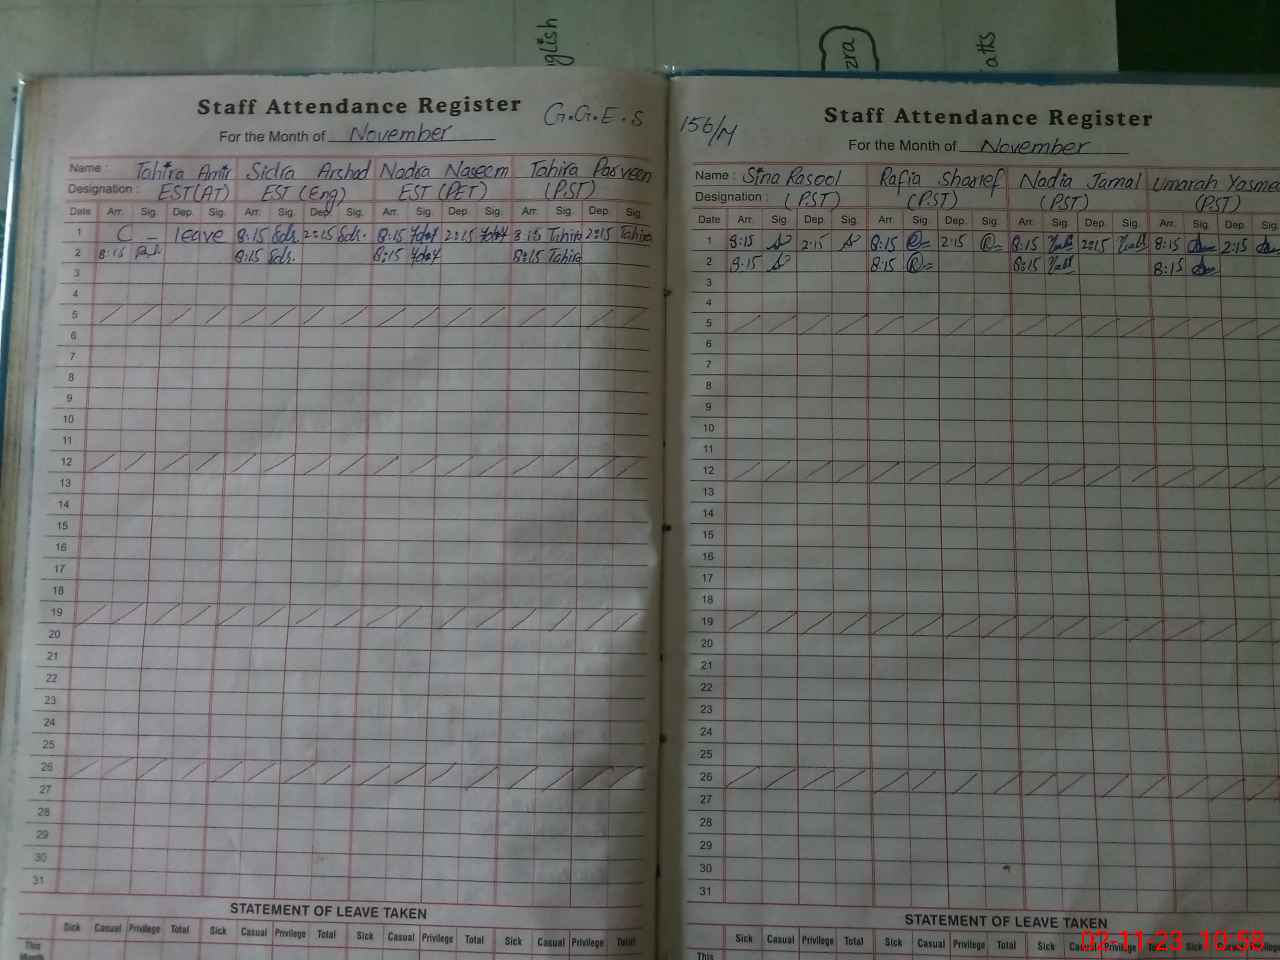 glish
zra
aths
Staff Attendance Register
G.G.E.S
For the Month of November
Name : Tahira Amir Sidra Arshad Nadra Naseem Tahira Parveen
Designation : EST(AT) EST (Eng) EST (PET) (PST)
Date Arr. Sig. Dep. Sig. Arr. Sig. Dep. Sig. Arr. Sig. Dep. Sig. Arr. Sig. Dep. Sig.
1 C - leave 8:15 Sdr. 2:15 Sdr. 8:15 2:15 8:15 Tahira 2:15 Tahira
2 8:15 8:15 Sdr. 8:15 8:15 Tahira
3
4
5
6
7
8
9
10
11
12
13
14
15
16
17
18
19
20
21
22
23
24
25
26
27
28
29
30
31
STATEMENT OF LEAVE TAKEN
Sick Casual Privilege Total Sick Casual Privilege Total Sick Casual Privilege Total Sick Casual Privilege Total
This
Month
156/M
Staff Attendance Register
For the Month of November
Name : Sina Rasool Rafia Shareef Nadia Jamal Umarah Yasme
Designation : (PST) (PST) (PST) (PST)
Date Arr. Sig. Dep. Sig. Arr. Sig. Dep. Sig. Arr. Sig. Dep. Sig. Arr. Sig. Dep. Sig.
1 8:15 2:15 8:15 2:15 8:15 2:15 8:15 2:15
2 8:15 8:15 8:15 8:15
3
4
5
6
7
8
9
10
11
12
13
14
15
16
17
18
19
20
21
22
23
24
25
26
27
28
29
30
31
STATEMENT OF LEAVE TAKEN
Sick Casual Privilege Total Sick Casual Privilege Total Sick Casual Privilege Total Sick Casual Privilege Total
This
02-11-23 10:58